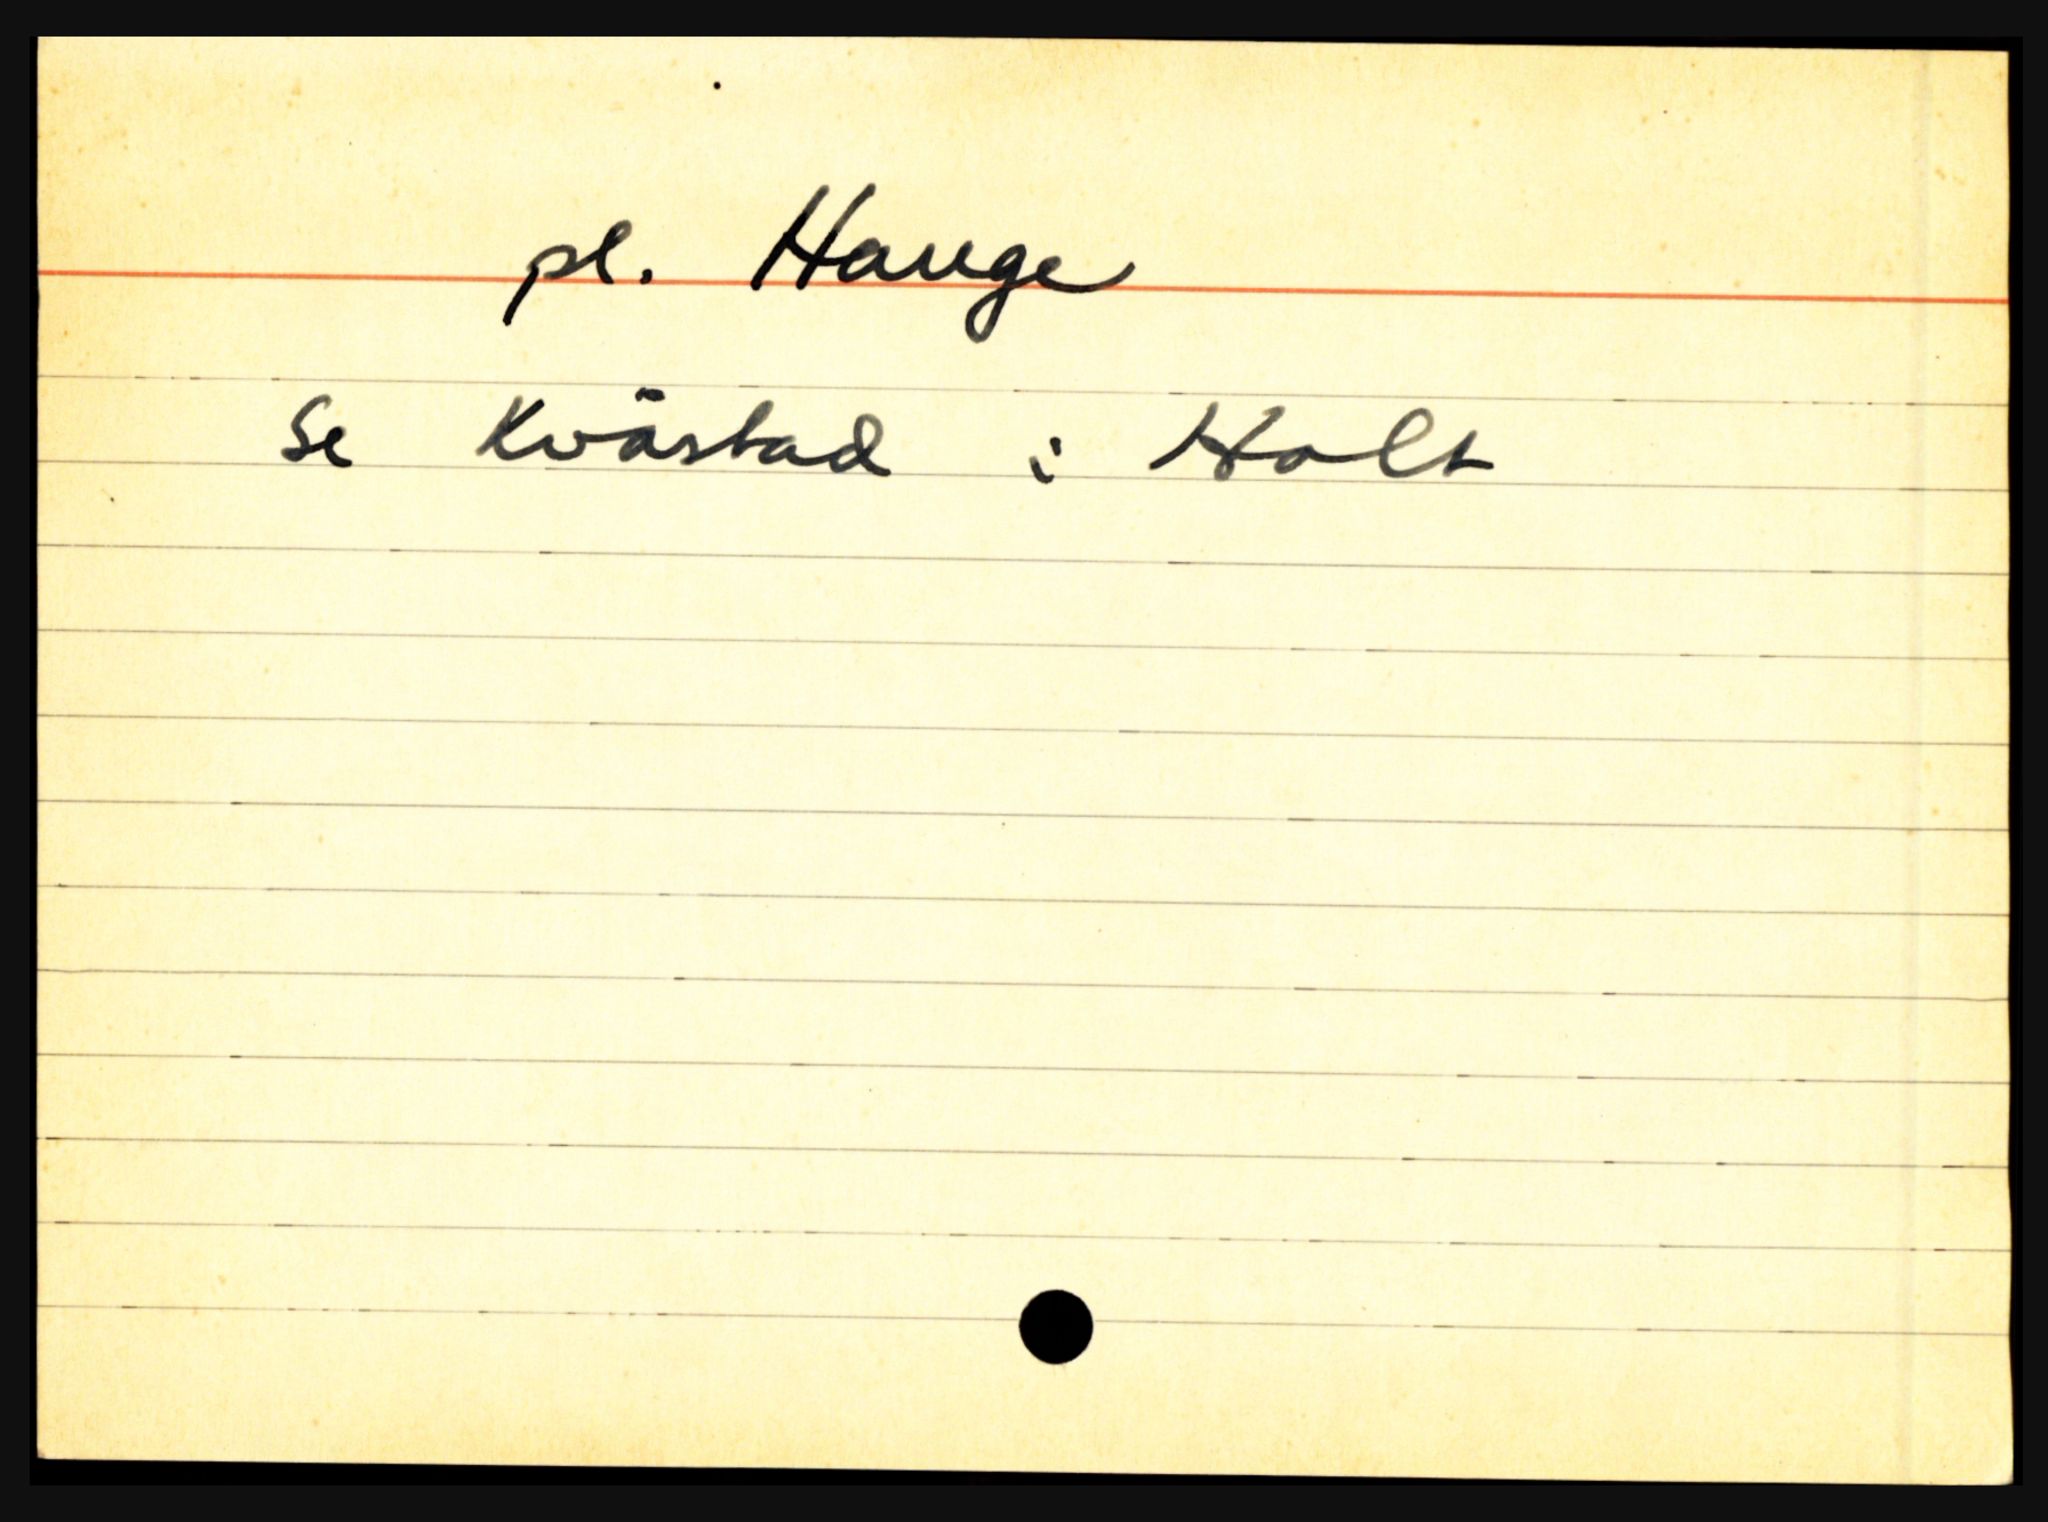 pl. Hauge
Se Kvåstad i Holt